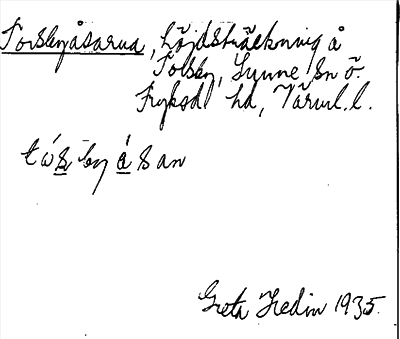 Torsbyåsarna, höjdsträckning å
Torsby, Lysvik sn Ö.
Fryksd. hd, Värml. l.
tó̀s by ǻsan
Greta Hedin 1935.